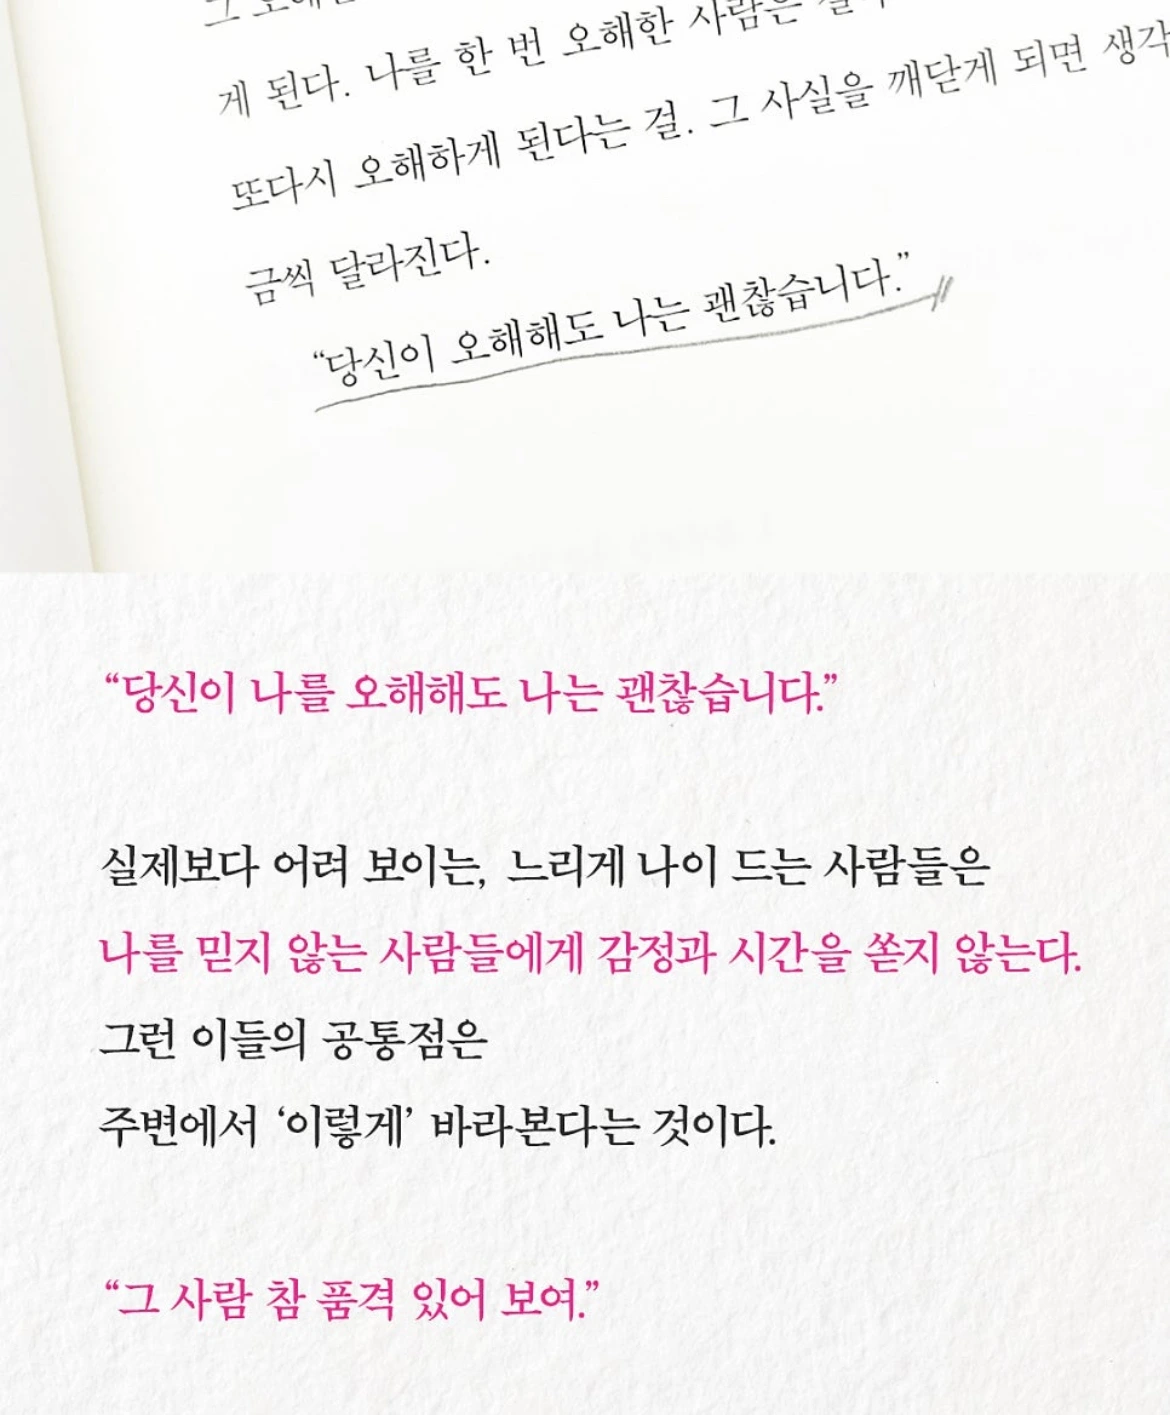 게 된다. 나를 한 번 오해한 사람은
또다시 오해하게 된다는 걸. 그 사실을 깨닫게 되면 생각
금씩 달라진다.
“당신이 오해해도 나는 괜찮습니다.”
“당신이 나를 오해해도 나는 괜찮습니다.”
실제보다 어려 보이는, 느리게 나이 드는 사람들은
나를 믿지 않는 사람들에게 감정과 시간을 쏟지 않는다.
그런 이들의 공통점은
주변에서 ‘이렇게’ 바라본다는 것이다.
“그 사람 참 품격 있어 보여.”